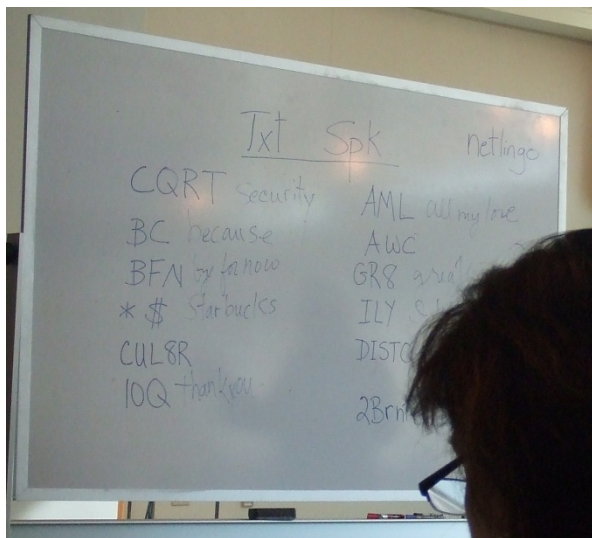 Txt Spk
netlingo
CQRT Security
BC because
BFN by for now
*$ Starbucks
CUL8R
10Q thank you
AML all my love
AWC
GR8 great
ILY